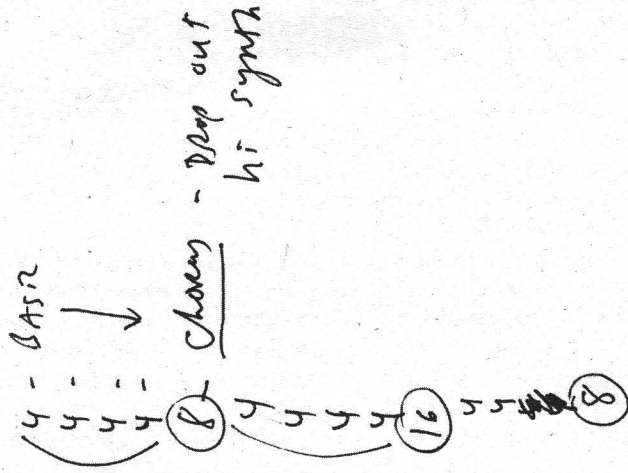 4 - BASIC
4 -
4 -
4 -
8 - Chorus - Drop out
hi synth
4
4
4
4
16
4
4
8